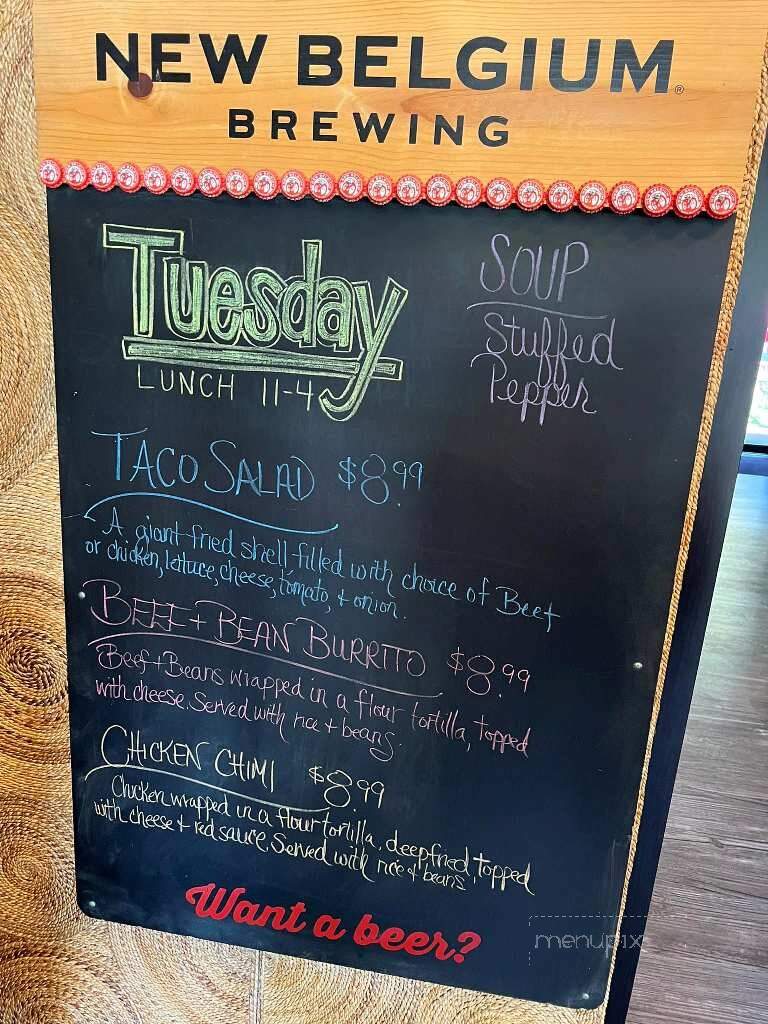 NEW BELGIUM®
BREWING
Tuesday
LUNCH 11-4
SOUP
Stuffed
Pepper
TACO SALAD $8.99
A giant fried shell filled with choice of Beef
or chicken, lettuce, cheese, tomato, + onion.
BEEF + BEAN BURRITO $8.99
Beef + Beans wrapped in a flour tortilla, topped
with cheese. Served with rice + beans.
CHICKEN CHIMI $8.99
Chicken wrapped in a flour tortilla, deepfried, topped
with cheese + red sauce. Served with rice + beans
Want a beer?
menupix